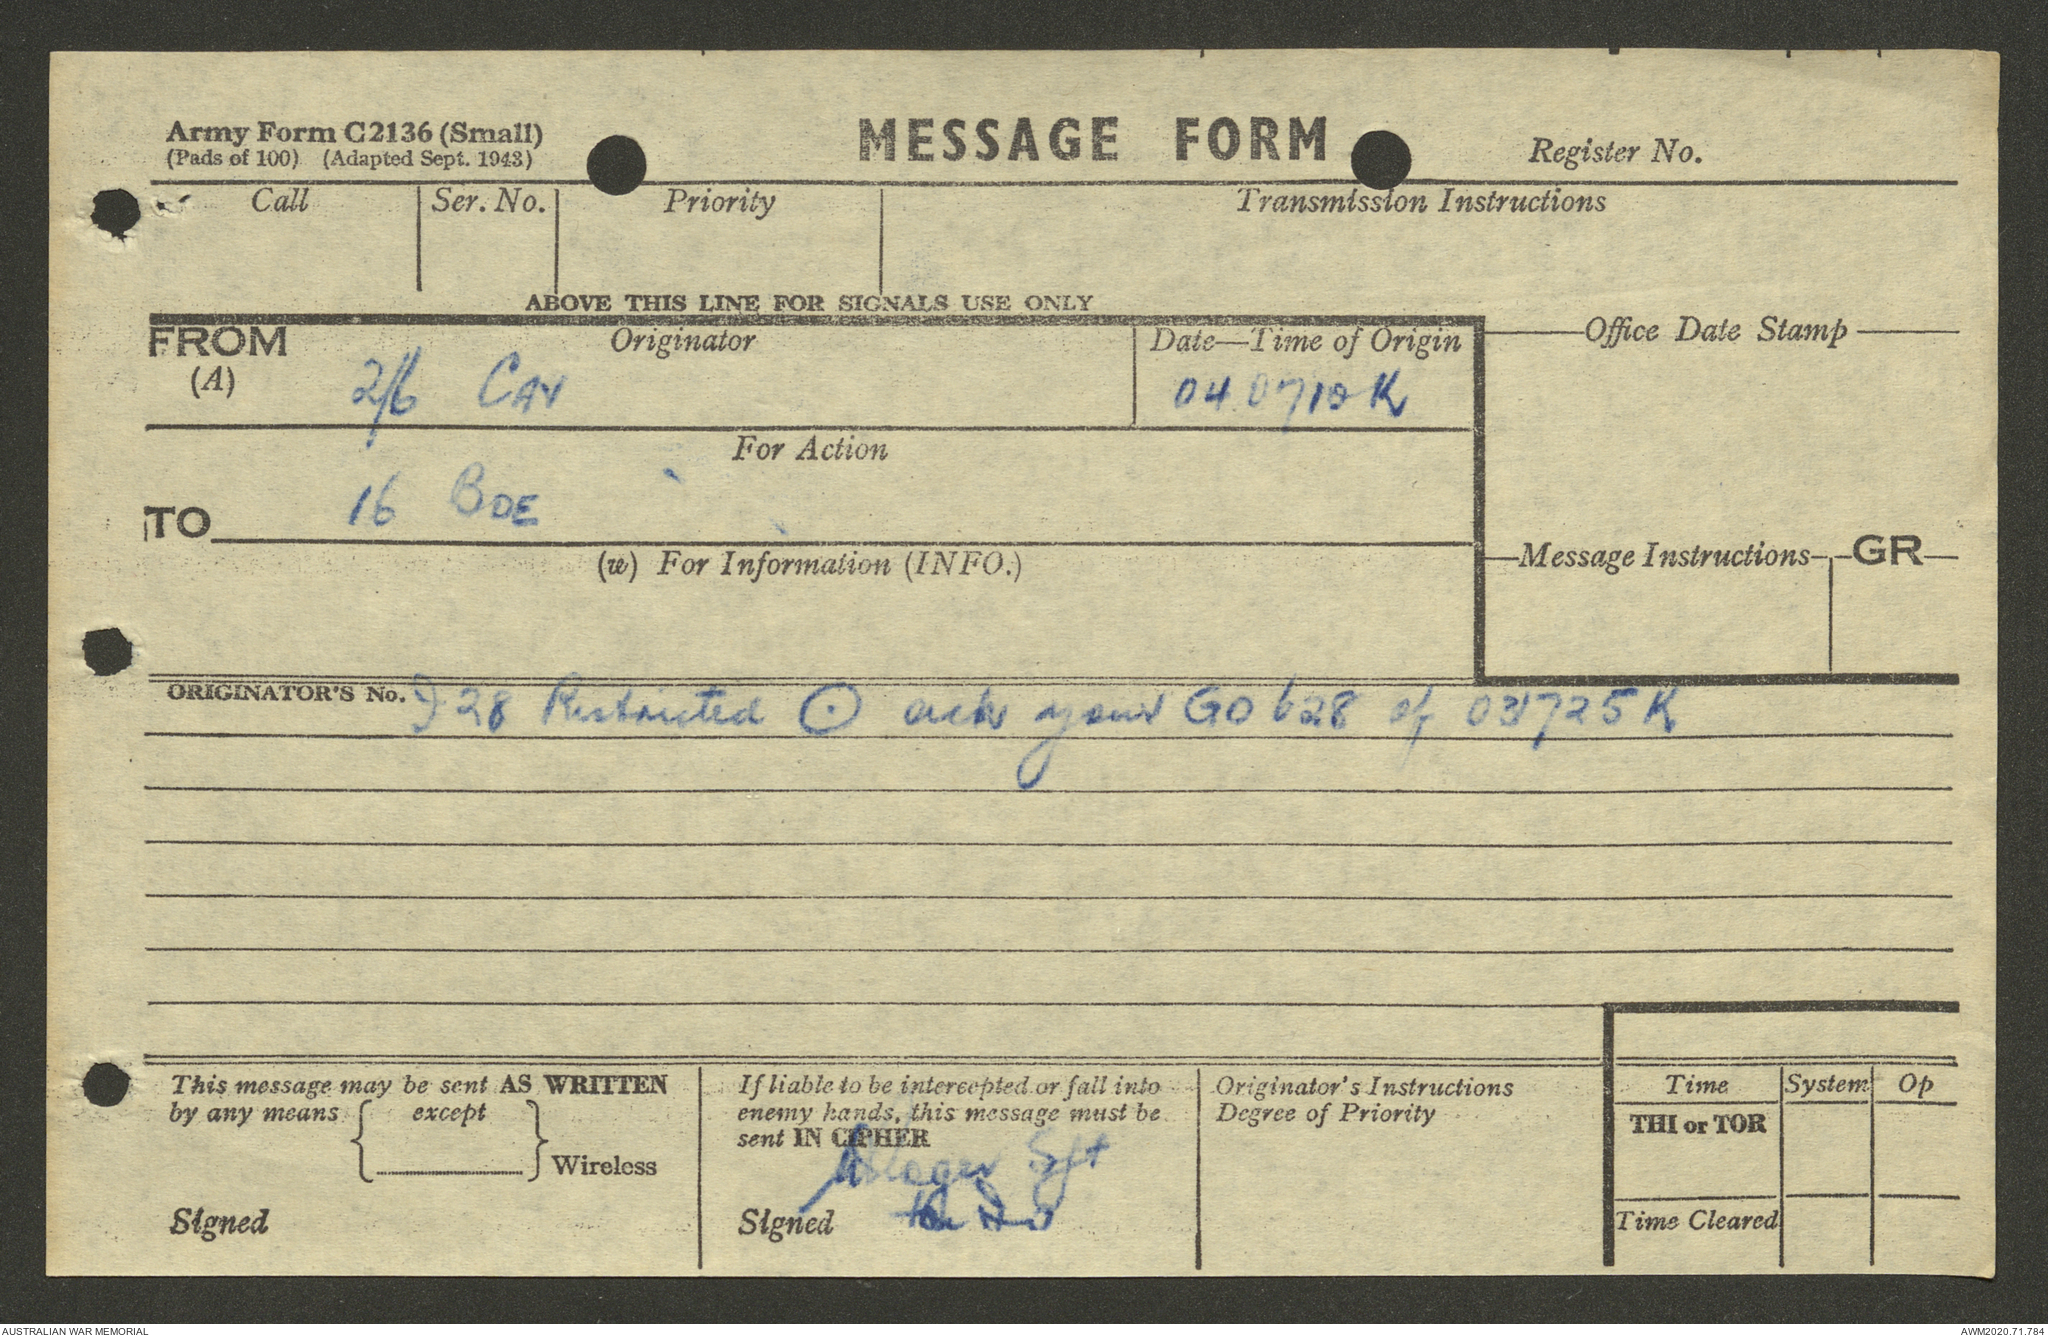 Army Form C2136 (Small)
(Pads of 100) (Adapted Sept. 1943)
MESSAGE FORM
Register No.
Call
Ser. No.
Priority
Transmission Instructions
ABOVE THIS LINE FOR SIGNALS USE ONLY
FROM
(A)
Originator
2/6 CAV
Date—Time of Origin
040710K
Office Date Stamp
For Action
16 BDE
TO
(w) For Information (INFO.)
Message Instructions
GR
ORIGINATOR'S No. I 28 Restricted ⊙ ack your GO 628 of 031725K
This message may be sent AS WRITTEN
by any means { except
} Wireless
Signed
If liable to be intercepted or fall into
enemy hands, this message must be
sent IN CIPHER
Sgt
Signed
Originator's Instructions
Degree of Priority
Time
System
Op
THI or TOR
Time Cleared
AUSTRALIAN WAR MEMORIAL
AWM2020.71.784